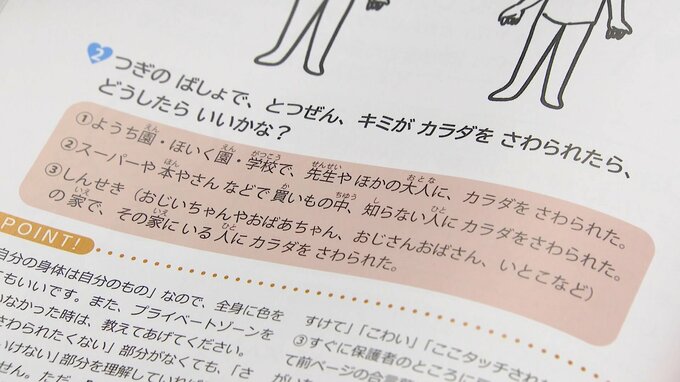 2 つぎの ばしょで、とつぜん、キミが カラダを さわられたら、
どうしたら いいかな？
①ようち園・ほいく園・学校で、先生や ほかの大人に、カラダを さわられた。
②スーパーや 本やさん などで 買いもの中、知らない人に カラダをさわられた。
③しんせき（おじいちゃんやおばあちゃん、おじさんおばさん、いとこなど）
の 家で、その家にいる 人に カラダを さわられた。
POINT!
自分の身体は自分のもの」なので、全身に色を
てもいいです。また、プライベートゾーンを
いなかった時は、教えてあげてください。
さわられたくない」部分がなくても、「さ
いけない」部分を理解していれば
せん。ただ
すけて」「こわい」「ここタッチされ
③すぐに保護者のところに
て前ページの合言葉